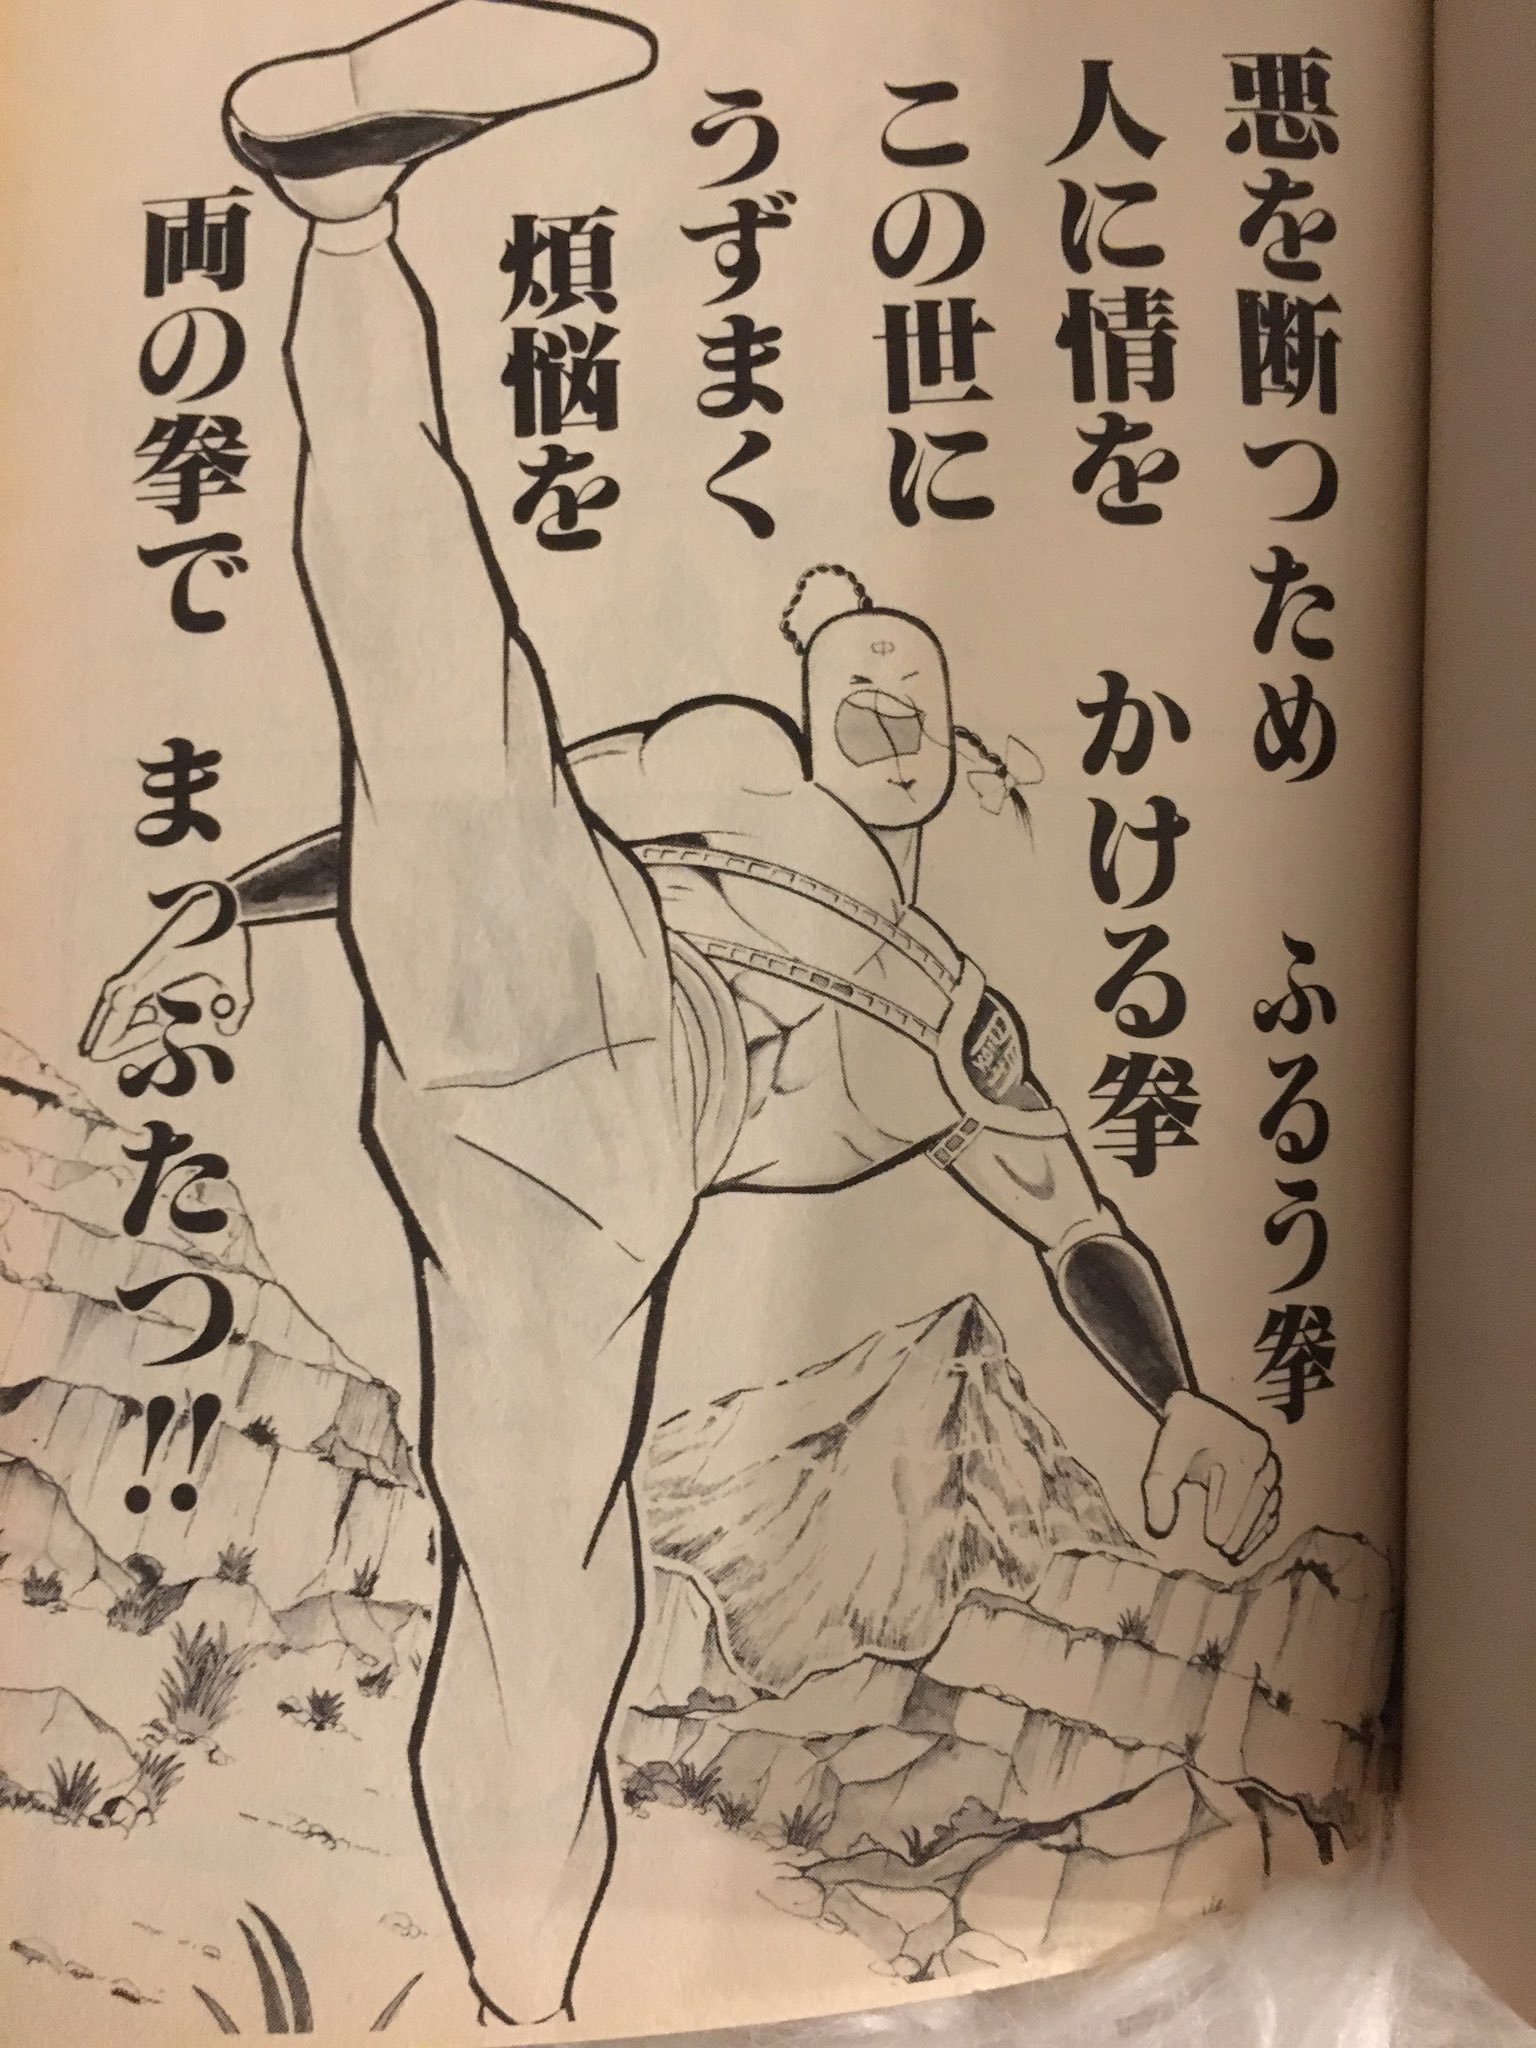 悪を断つため ふるう拳
人に情を かける拳
この世に
うずまく
煩悩を
両の拳で まっぷたつ!!
中